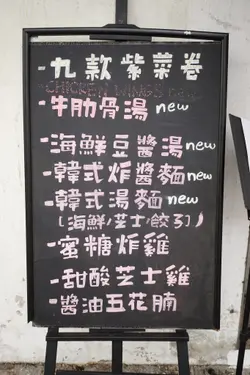 -九款紫菜卷
CHICKEN WINGS new
-牛肋骨湯 new
-海鮮豆醬湯 new
-韓式炸醬麵 new
-韓式湯麵 new
(海鮮/芝士/餃子)
-蜜糖炸雞
-甜酸芝士雞
-醬油五花腩